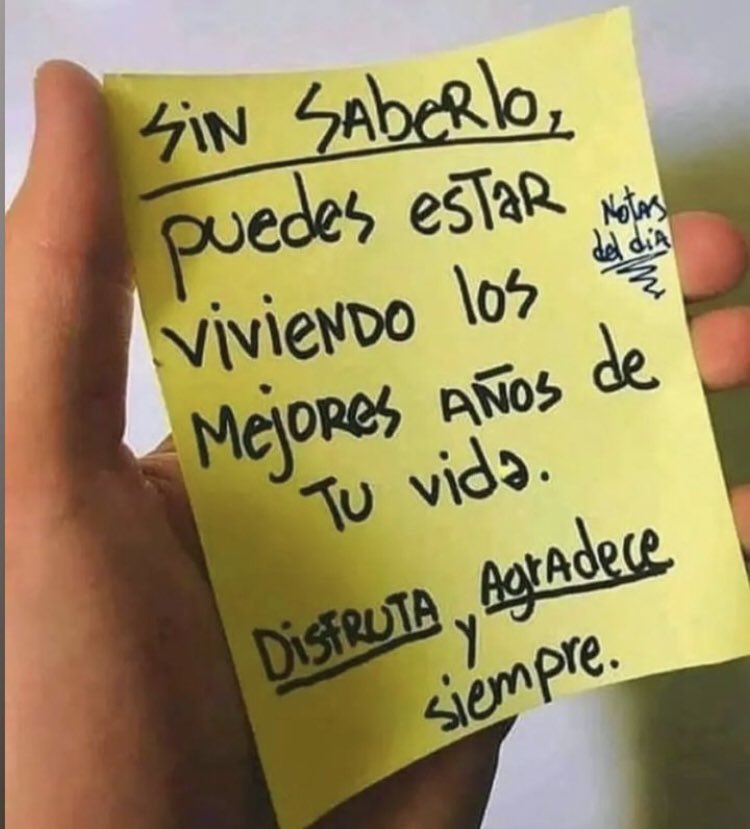 SiN SAbeRlo,
puedes esTaR
vivieNDO los
MejoRes AÑOs de
TU vida.
DisfRUTA y AgrAdece
siempre.
NoTAs
del diA